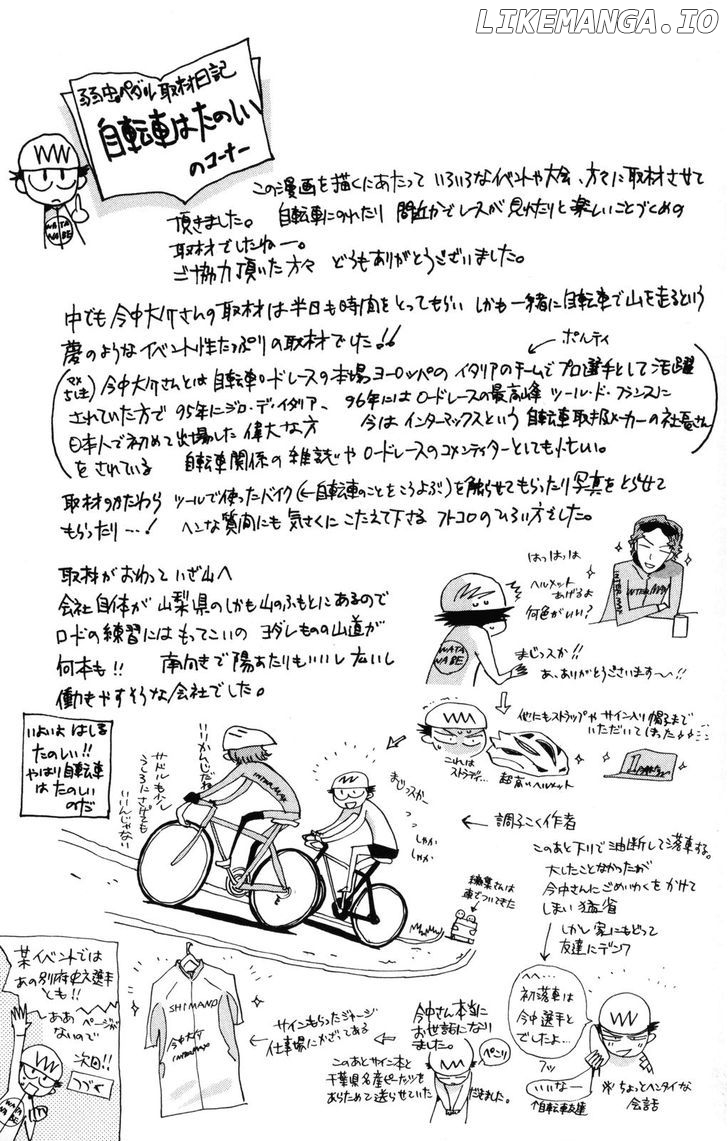 LIKEMANGA.IO
弱虫ペダル取材日記
自転車はたのしい
のコーナー
WATA
NABE
この漫画を描くにあたって いろいろなイベントや大会、方々に取材させて
頂きました。 自転車にのれたり 間近かでレースが見れたりと楽しいことづくめの
取材でしたねー。
ご協力頂いた方々 どうもありがとうございました。
中でも今中大介さんの取材は半日も時間をとってもらい しかも一緒に自転車で山を走るという
夢のようなイベント性たっぷりの取材でした!!
ポルティ
今中大介さんとは 自転車ロードレースの本場ヨーロッパの イタリアのチームでプロ選手として活躍
されていた方で 95年にジロ・デ・イタリア、 96年にはロードレースの最高峰 ツール・ド・フランスに
日本人で初めて出場した偉大な方 今はインターマックスという 自転車取扱メーカーの社長さん
をされている 自転車関係の雑誌や ロードレースのコメンテイターとしても忙しい。
取材のかたわら ツールで使ったバイク(←自転車のことをこうよぶ)を触らせてもらったり写真をとらせて
もらったり…! ヘンな質問にも 気さくにこたえて下さる フトコロのひろい方でした。
取材がおわって いざ山へ
会社自体が山梨県のしかも山のふもとにあるので
ロードの練習にはもってこいの ヨダレものの山道が
何本も!! 南向きで陽あたりもいいし 広いし
働きやすそうな会社でした。
はっはっは
ヘルメット
あげるよ
何色がいい?
INTERMAX
WATA
NABE
まじっスか!!
あ、ありがとうございます〜!!
他にもストラップや サイン入り帽子まで
いただいてしまった
これは
ストラップ…
超高いヘルメット
いよいよ はしる
たのしい!!
やはり自転車
は たのしい
のだ
いいかんじだね
サドルもう少し
うしろにさげても
いいんじゃない
まじっスかー
しゃか
しゃか
編集さんは
車でついてきた
調子こく作者
このあと下りで油断して落車する。
大したことなかったが
今中さんにごめいわくをかけて
しまい 猛省
しかし 家にもどって
友達にデンワ
へへ…
初落車は
今中選手と
でしたよ…
フッ
いいなー
自転車友達
※ちょっとヘンタイな
会話
某イベントでは
あの別府史之選手
とも!!
ああ ページが
ないので
次回!!
つづく
SHIMANO
今中大介
サインもらったジャージ
仕事場にかざってある
今中さん本当に
お世話になり
ました。
ぺこり
このあとサイン本と
千葉県名産ピーナッツを
あらためて送らせていただきました。